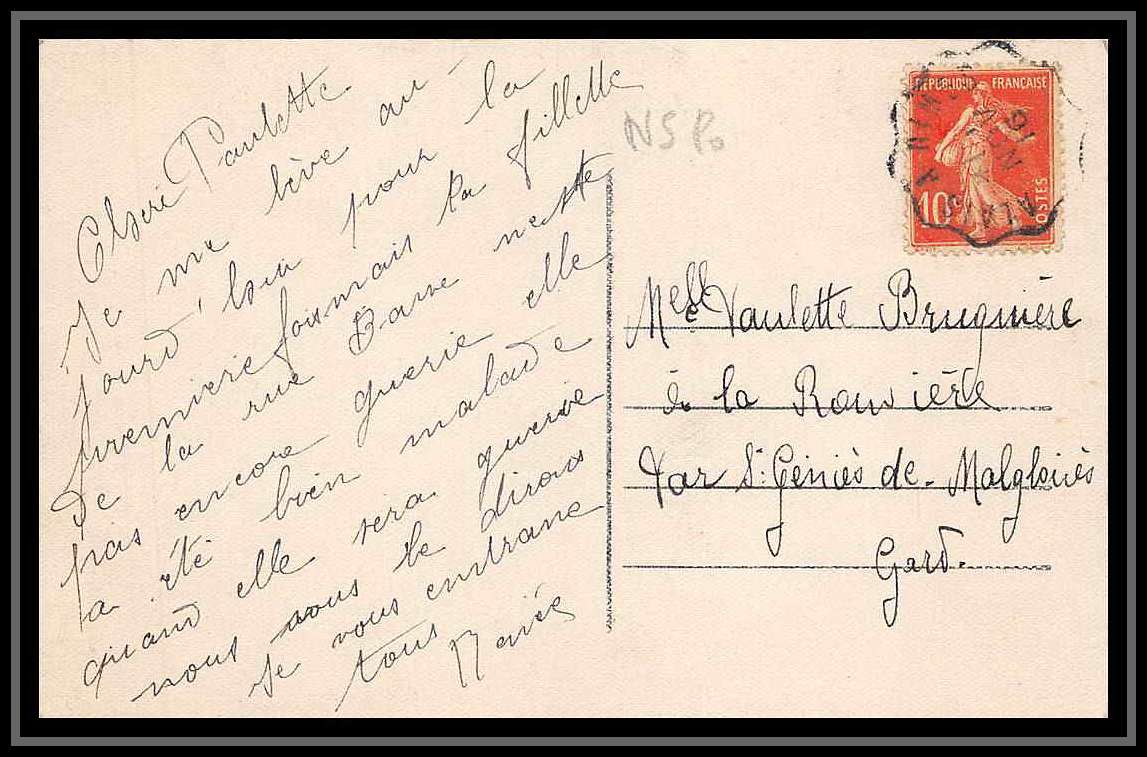 Cheri Paulette
Je me lève au
jourd'hui pour la
premiere fois mais la fillette
de la rue Barre nette
pas encore guerie elle
a été bien malade
quand elle sera guerie
nous vous le dirons
Je vous embrasse
tous
Renée
NSPo
RÉPUBLIQUE FRANÇAISE
10
POSTES
ALAIS A NIMES
Melle Paulette Bruguière
à la Rouvière
Par St. Géniès de-Malgloiriès
Gard.